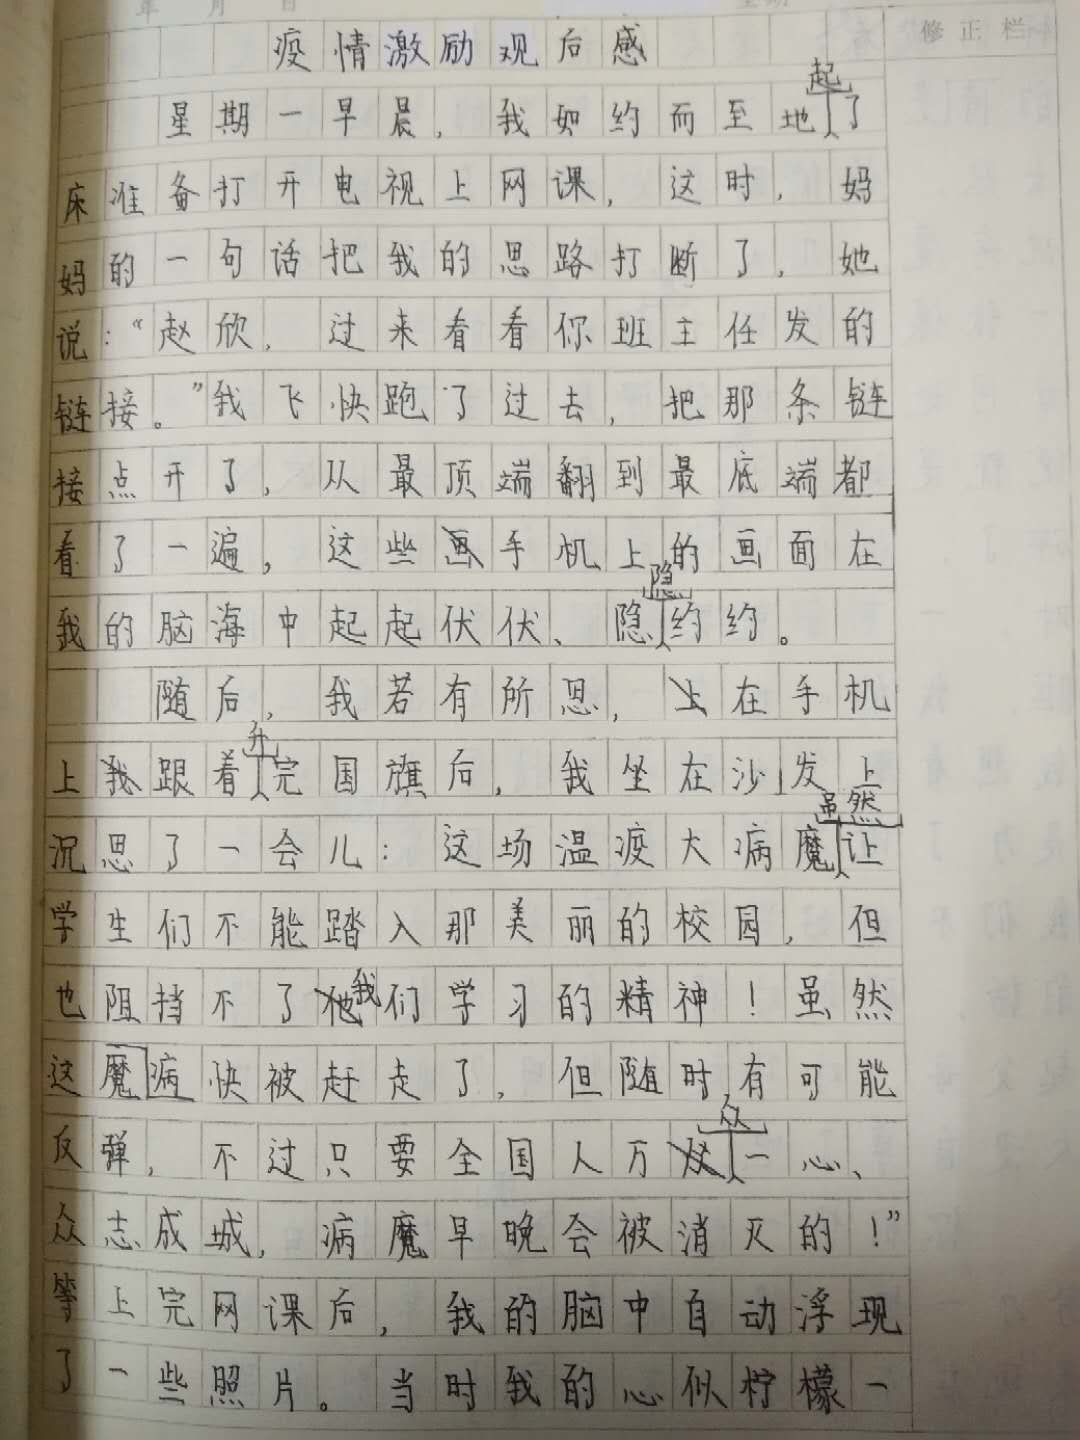 年 月 日
修正栏
疫情激励观后感
星期一早晨，我如约而至地起了
床准备打开电视上网课，这时，妈
妈的一句话把我的思路打断了，她
说：“赵欣，过来看看你班主任发的
链接。”我飞快跑了过去，把那条链
接点开了，从最顶端翻到最底端都
看了一遍，这些手机上的画面在
我的脑海中起起伏伏、隐隐约约。
随后，我若有所思，在手机
上跟着升完国旗后，我坐在沙发上
沉思了一会儿：这场温疫大病魔虽然让
学生们不能踏入那美丽的校园，但
也阻挡不了我们学习的精神！虽然
这魔病快被赶走了，但随时有可能
反弹，不过只要全国人万众一心、
众志成城，病魔早晚会被消灭的！”
等上完网课后，我的脑中自动浮现
了一些照片。当时我的心似柠檬一